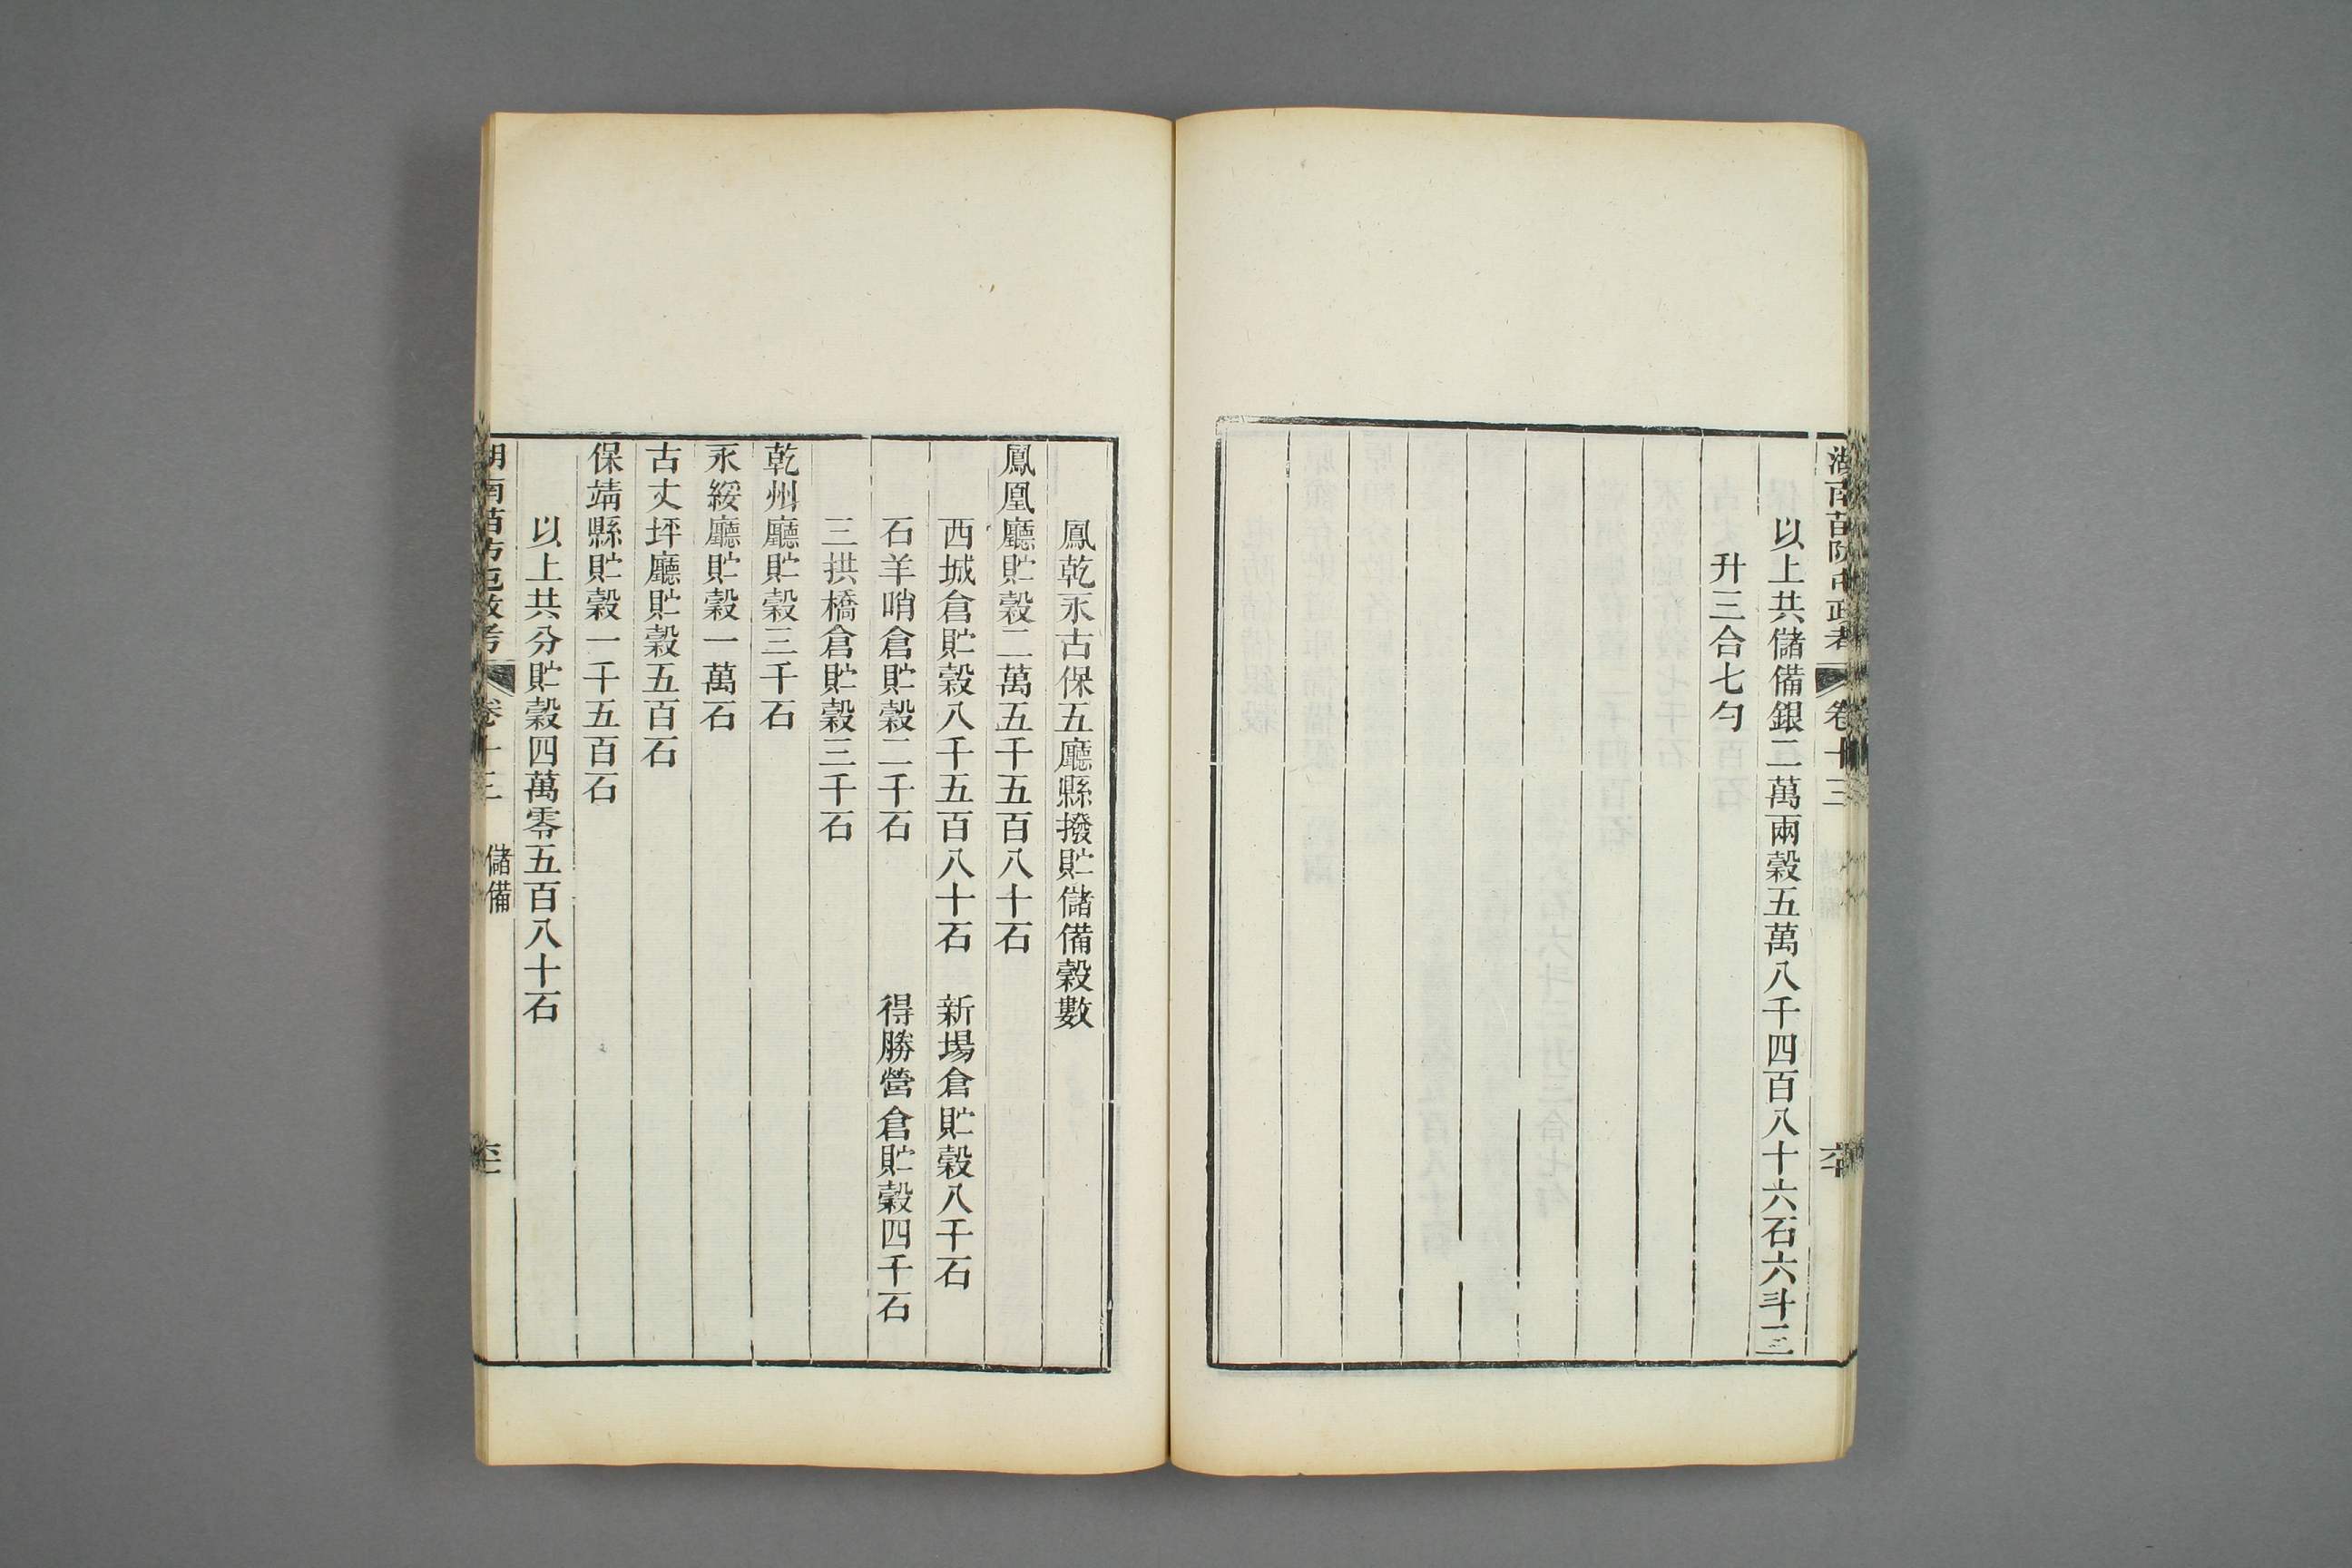 湖南苗防屯政考 卷十三 六十
以上共儲備銀二萬兩穀五萬八千四百八十六石六斗三
升三合七勺
鳳乾永古保五廳縣撥貯儲備穀數
鳳凰廳貯穀二萬五千五百八十石
西城倉貯穀八千五百八十石 新場倉貯穀八千石
石羊哨倉貯穀二千石 得勝營倉貯穀四千石
三拱橋倉貯穀三千石
乾州廳貯穀三千石
永綏廳貯穀一萬石
古丈坪廳貯穀五百石
保靖縣貯穀一千五百石
以上共分貯穀四萬零五百八十石
湖南苗防屯政考 卷十三 儲備